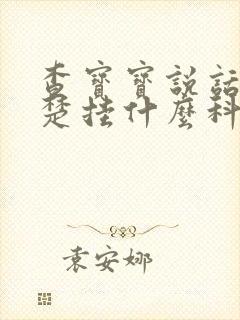 查寶寶說話
楚挂什麼科
袁安娜